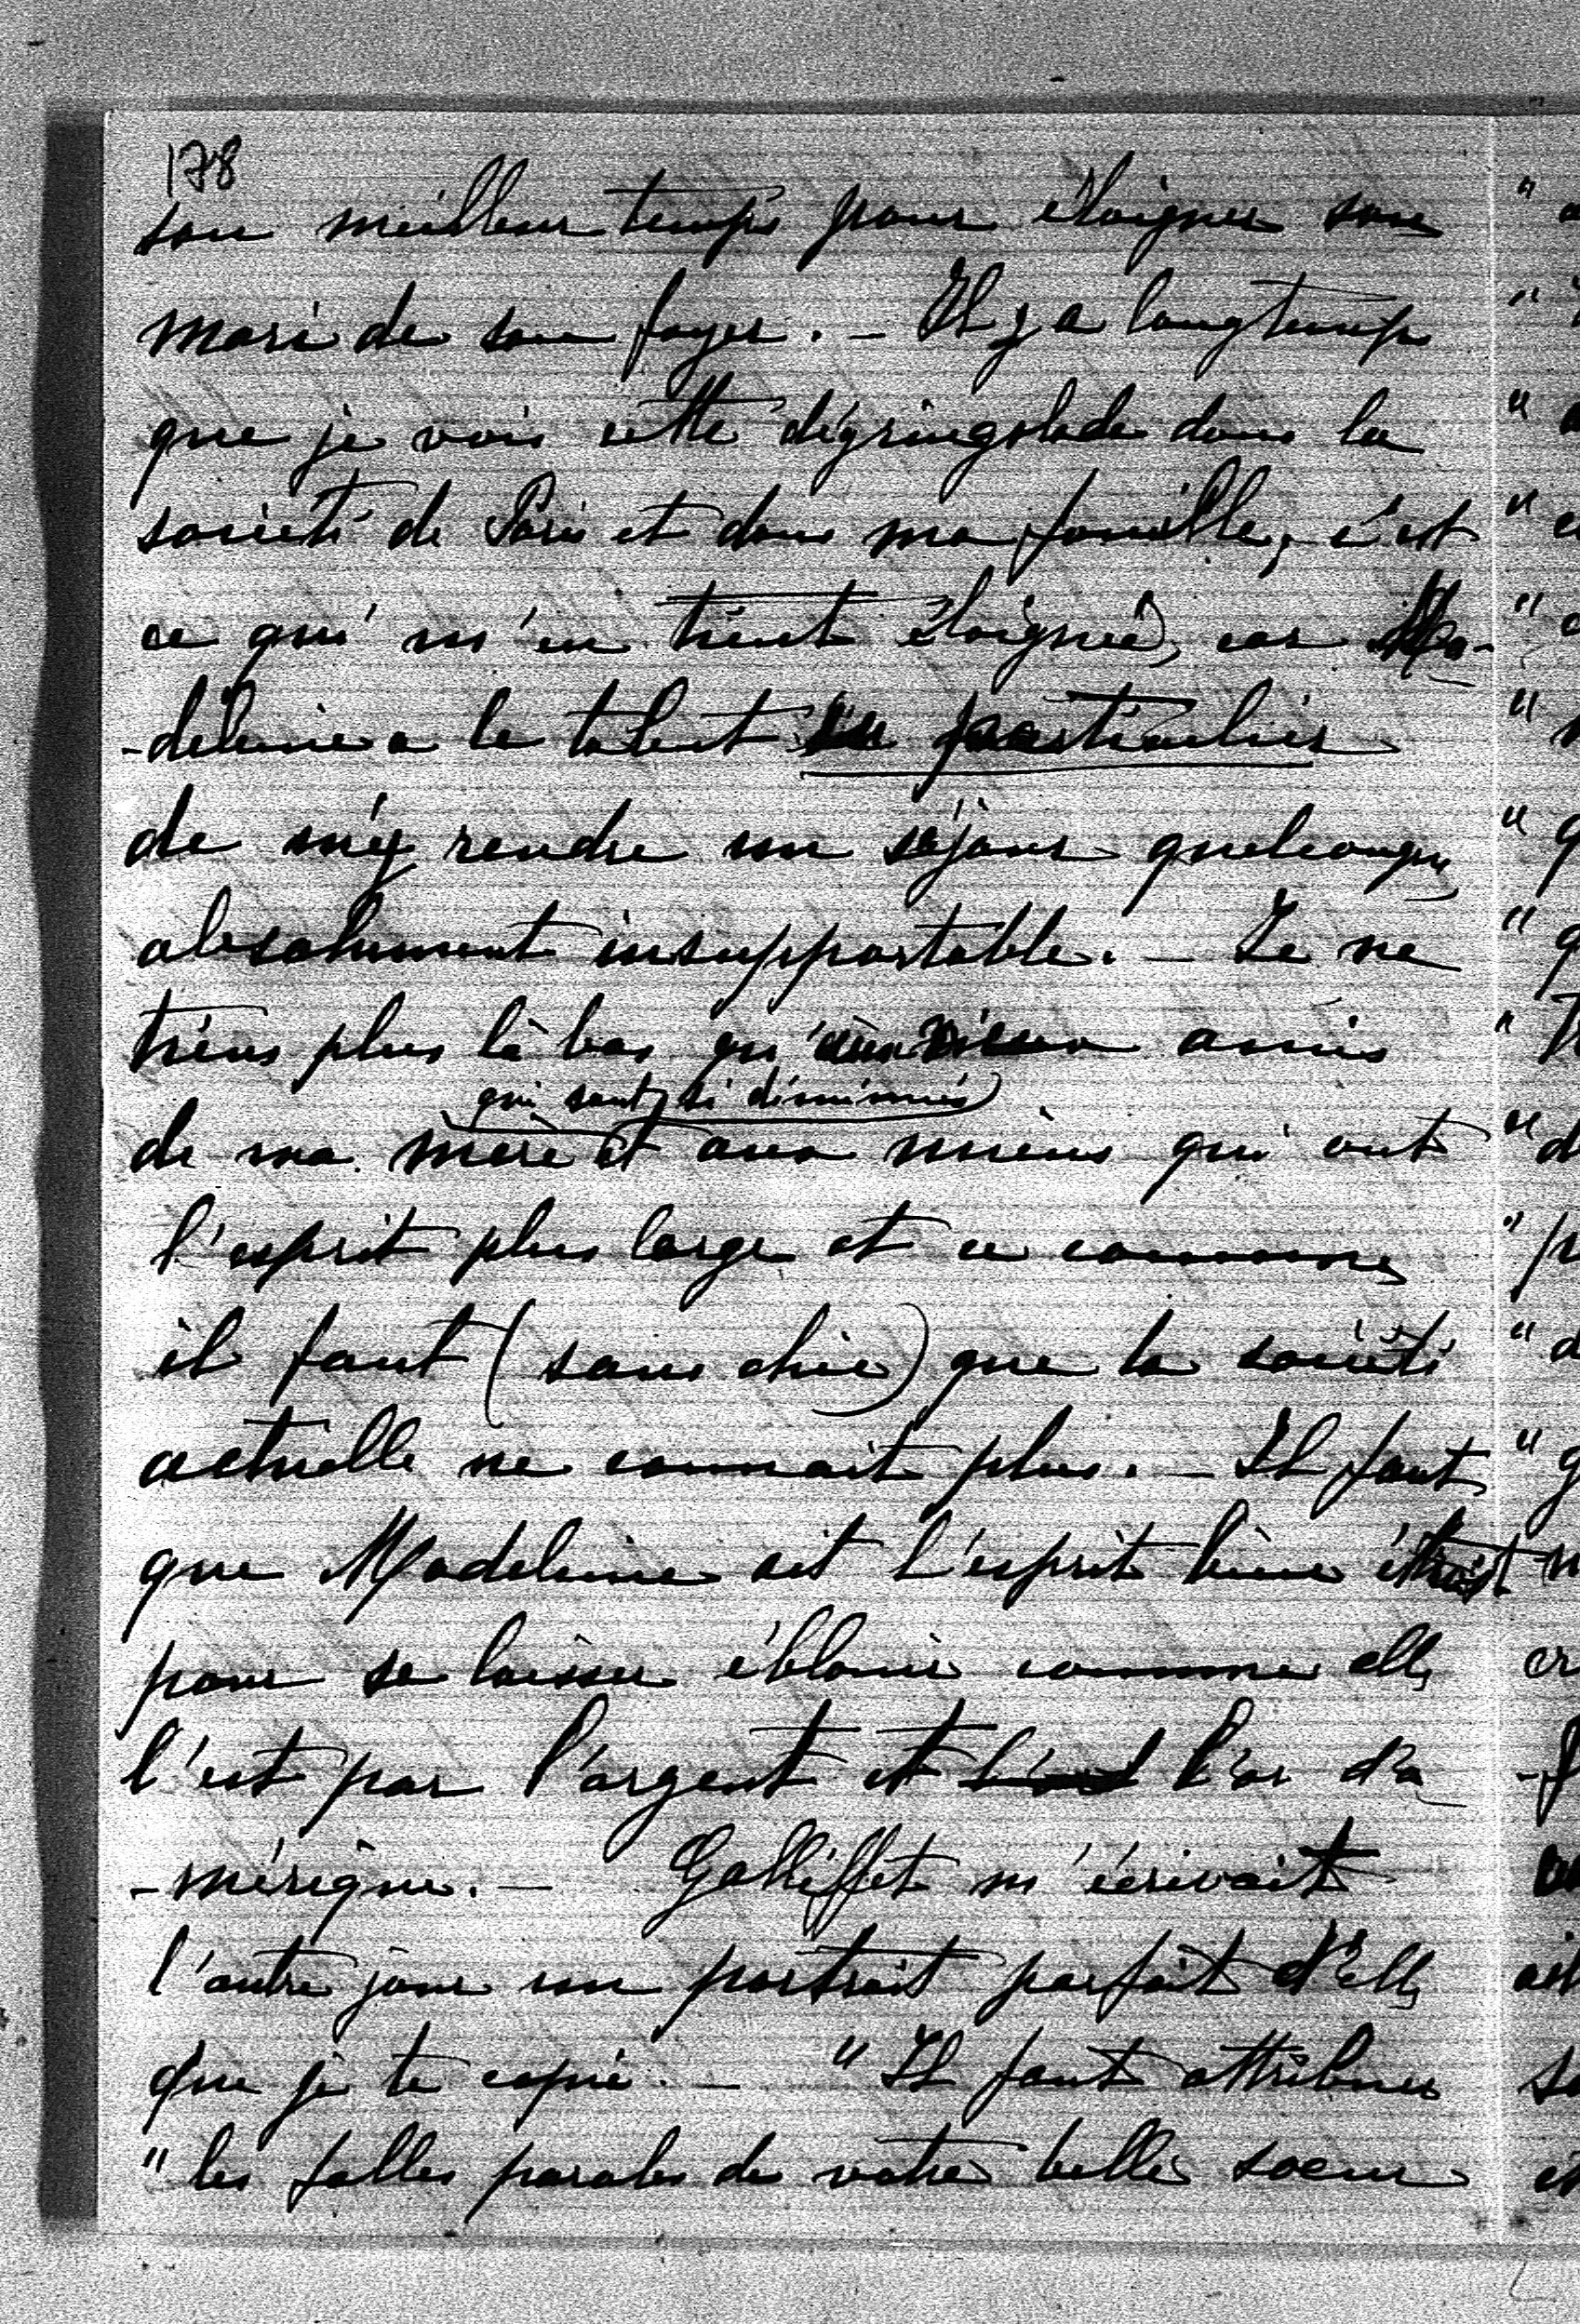 178
son meilleur temps pour éloigner son
mari de son foyer. - Il y a longtemps
que je vois cette dégringolade dans la
société de Paris et dans ma famille, c'est
ce qui m'en tient éloignée, car Ma-
-deleine a le talent particulier
de m'y rendre un séjour quelconque
absolument insupportable. - Je ne
tiens plus là bas qu'aux vieux amis
qui sont si diminués
de ma mère et aux miens qui ont
l'esprit plus large et ce comme
il faut (sans chic) que la société
actuelle ne connait plus. - Il faut
que Madeleine ait l'esprit bien étroit
pour se laisser éblouir comme elle
l'est par l'argent et l'or d'a
-mérique. - Galliffet m'écrivait
l'autre jour un portrait parfait d'elle
que je te copie. - "Il faut attribuer
"les folles paroles de votre belle soeur